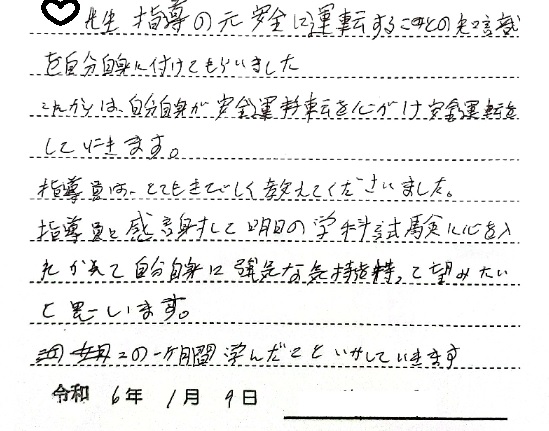 先生 指導の元 安全に運転することの知識
を自分自身に付けてもらいました
これからは、自分自身が 安全運転を心がけ 安全運転を
して いきます。
指導員は、とてもきびしく 教えてくださいました。
指導員に 感謝して 明日の 学科試験に心を入
れかえて 自分自身に 強気な気持を持って望みたい
と思います。
この一ヶ月間 学んだこと いかしていきます
令和 6年 1月 9日